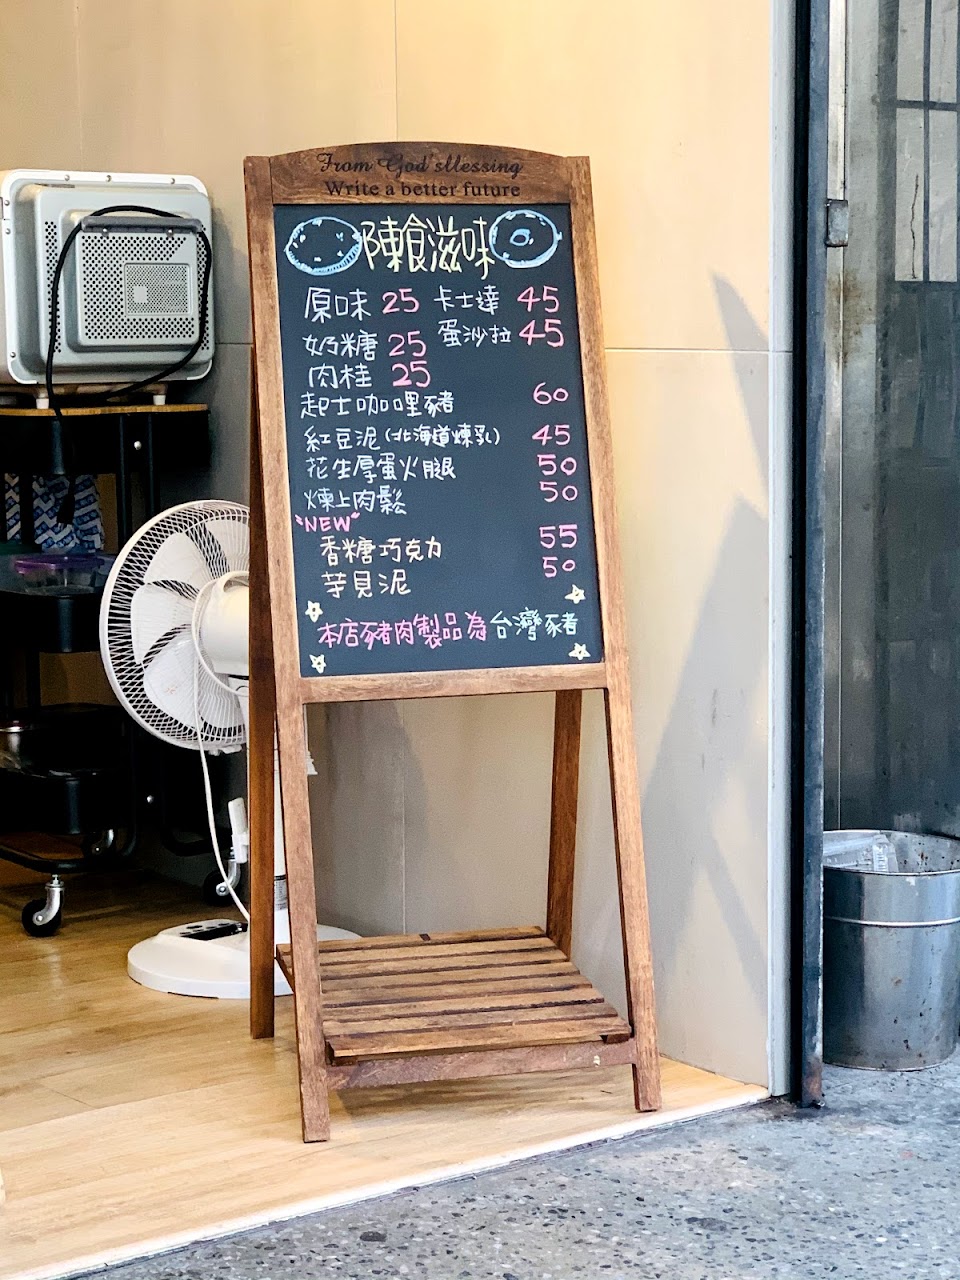 From God'sBlessing
Write a better future
陳食滋味
原味 25 卡士達 45
奶糖 25 蛋沙拉 45
肉桂 25
起士咖哩豬 60
紅豆泥(北海道煉乳) 45
花生厚蛋火腿 50
煉上肉鬆 50
"NEW"
香糖巧克力 55
芋見泥 50
本店豬肉製品為台灣豬